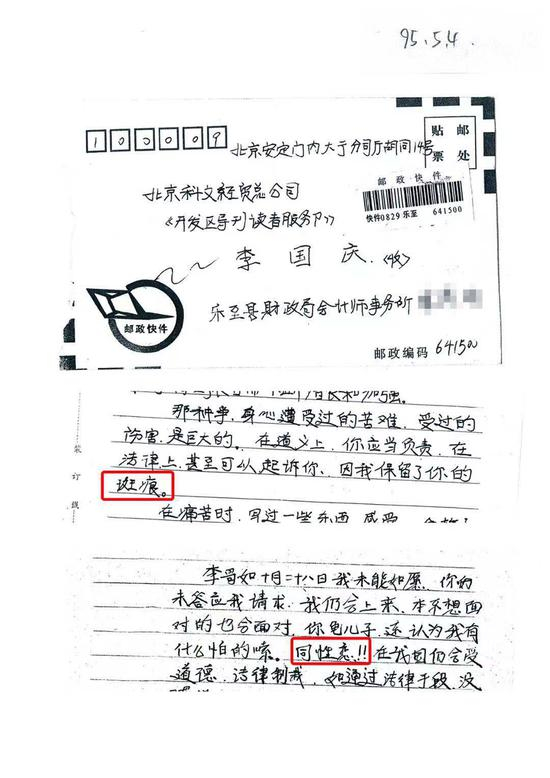 95.5.4.
100009
北京安定门内大方分司厅胡同14号
贴 邮
票 处
北京科文经贸总公司
邮政快件
快件0829 乐至 641500
《开发区导刊读者服务户》
李国庆.(收)
邮政快件
乐至县财政局会计师事务所
邮政编码 641500
那种事,身心遭受过的苦难,受过的
伤害,是巨大的。在道义上,你应当负责,在
法律上,甚至可以起诉你、因我保留了你的
斑痕。
装订线
在痛苦时,写过一些东西
李哥如十月二十八日我未能如愿,你的
未答应我请求.我们会上来,本不想面
对的也会面对,你龟儿子,还认为我有
什么怕的嗦。同性恋!!在我国仍会受
道德、法律制裁,如通过法律手段,没